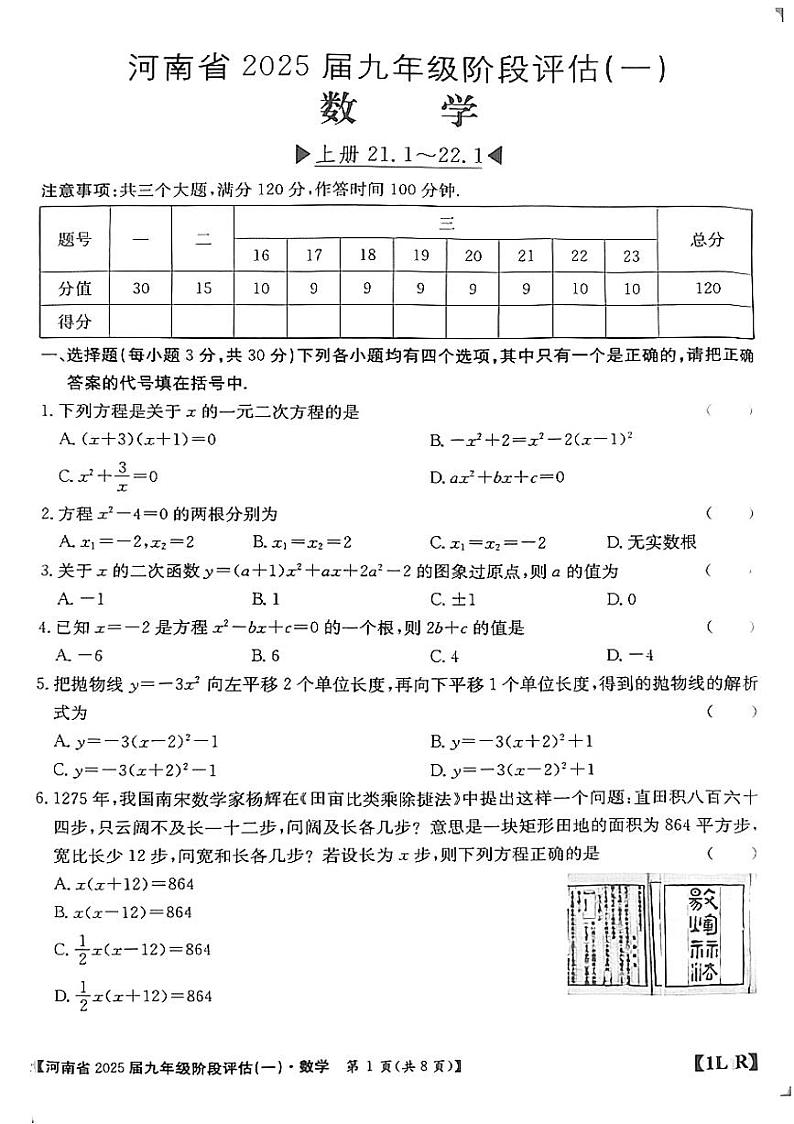 河南省 2025 届九年级阶段评估(一)
数 学
▶上册 21.1～22.1◀
注意事项:共三个大题,满分 120 分,作答时间 100 分钟.
题号 一 二 三 总分
16 17 18 19 20 21 22 23
分值 30 15 10 9 9 9 9 9 10 10 120
得分
一、选择题(每小题 3 分,共 30 分)下列各小题均有四个选项,其中只有一个是正确的,请把正确
答案的代号填在括号中.
1. 下列方程是关于 x 的一元二次方程的是 ( )
A. (x+3)(x+1)=0 B. −x²+2=x²−2(x−1)²
C. x²+3/x=0 D. ax²+bx+c=0
2. 方程 x²−4=0 的两根分别为 ( )
A. x₁=−2,x₂=2 B. x₁=x₂=2 C. x₁=x₂=−2 D. 无实数根
3. 关于 x 的二次函数 y=(a+1)x²+ax+2a²−2 的图象过原点,则 a 的值为 (
A. −1 B. 1 C. ±1 D. 0
4. 已知 x=−2 是方程 x²−bx+c=0 的一个根,则 2b+c 的值是 ( )
A. −6 B. 6 C. 4 D. −4
5. 把抛物线 y=−3x² 向左平移 2 个单位长度,再向下平移 1 个单位长度,得到的抛物线的解析
式为 ( )
A. y=−3(x−2)²−1 B. y=−3(x+2)²+1
C. y=−3(x+2)²−1 D. y=−3(x−2)²+1
6. 1275 年,我国南宋数学家杨辉在《田亩比类乘除捷法》中提出这样一个问题:直田积八百六十
四步,只云阔不及长一十二步,问阔及长各几步? 意思是一块矩形田地的面积为 864 平方步,
宽比长少 12 步,问宽和长各几步? 若设长为 x 步,则下列方程正确的是 ( )
A. x(x+12)=864
B. x(x−12)=864
C. 1/2x(x−12)=864
D. 1/2x(x+12)=864
【河南省 2025 届九年级阶段评估(一)·数学 第 1 页(共 8 页)】 【1L R】